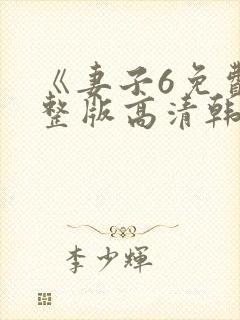 《妻子6免费
整版高清韩
李少辉